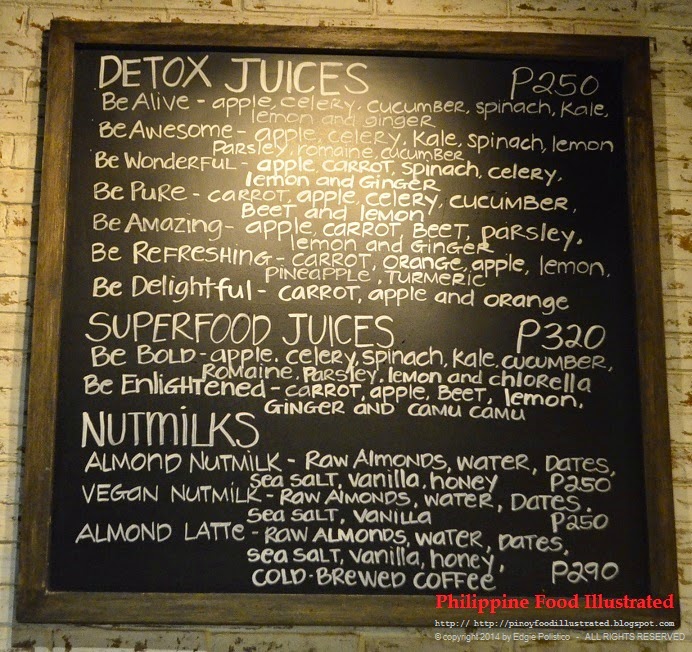 DETOX JUICES P250
Be Alive - apple, celery, cucumber, spinach, Kale,
lemon and ginger
Be Awesome - apple, celery, Kale, spinach, lemon
Parsley, romaine, cucumber
Be Wonderful - apple, carrot, spinach, celery,
lemon and Ginger
Be Pure - carrot, apple, celery, cucumber,
Beet, and lemon
Be Amazing - apple, carrot, Beet, parsley,
lemon and Ginger
Be Refreshing - carrot, orange, apple, lemon,
pineapple, turmeric
Be Delightful - carrot, apple and orange
SUPERFOOD JUICES P320
Be Bold - apple, celery, spinach, kale, cucumber,
Romaine, Parsley, lemon and chlorella
Be Enlightened - carrot, apple, Beet, lemon,
Ginger and camu camu
NUTMILKS
ALMOND NUTMILK - Raw Almonds, water, Dates,
sea salt, vanilla, honey P250
VEGAN NUTMILK - Raw Almonds, water, Dates,
sea salt, vanilla P250
ALMOND LATTE - Raw Almonds, water, Dates,
sea salt, vanilla, honey,
cold-brewed coffee P290
Philippine Food Illustrated
http:// http://pinoyfoodillustrated.blogspot.com
© copyright 2014 by Edgie Polistico - ALL RIGHTS RESERVED